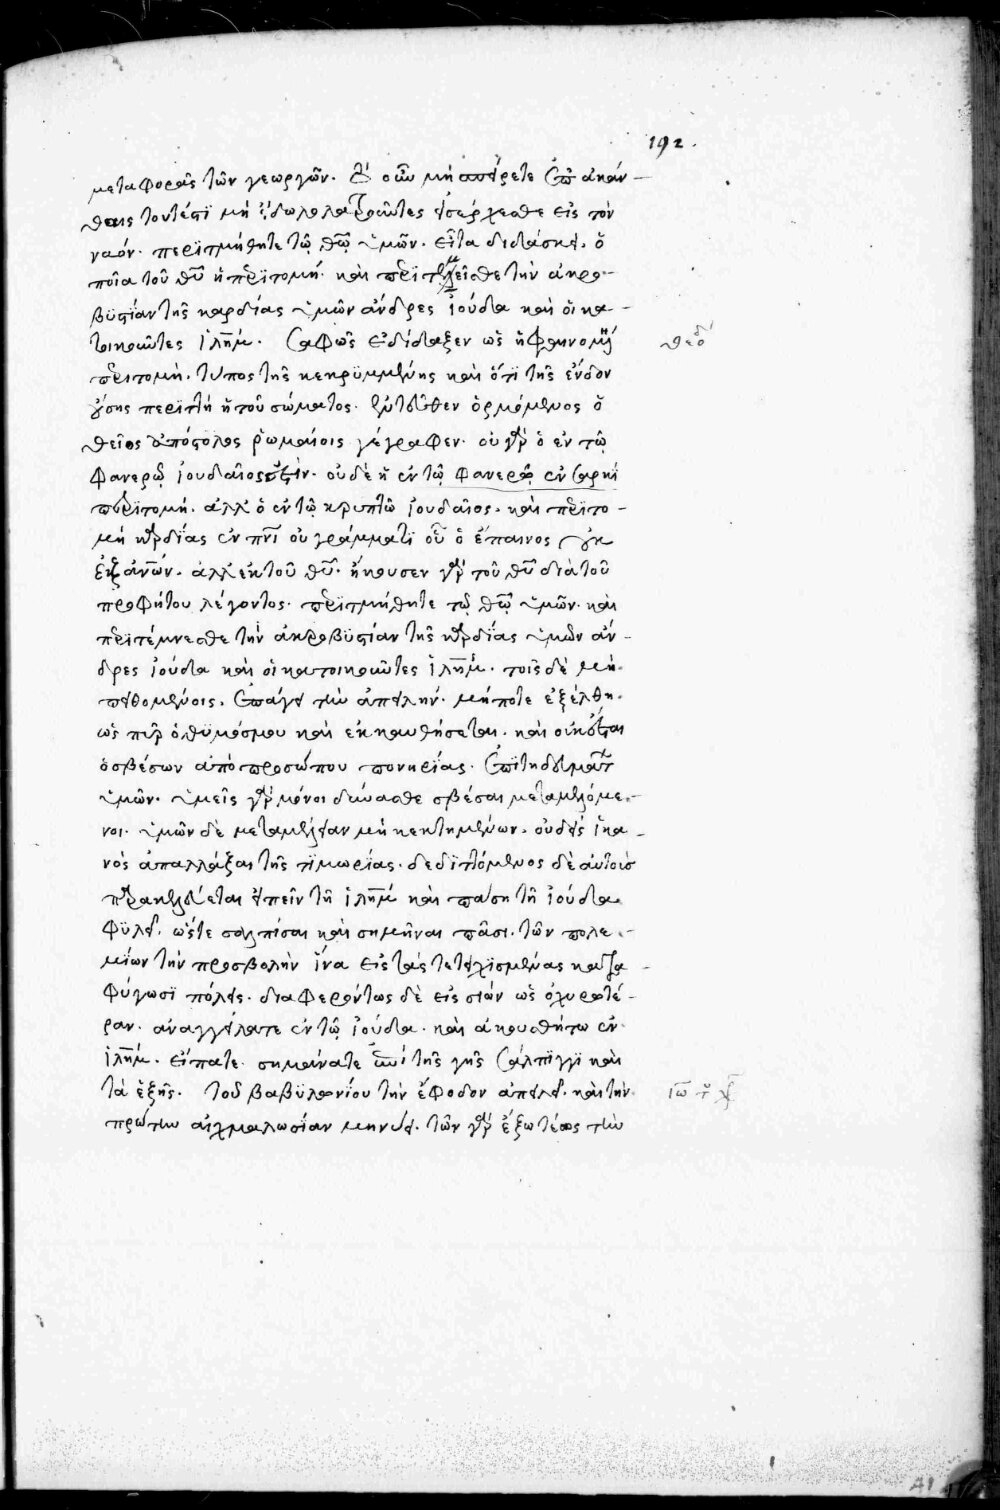 192.
μεταφορᾶς τῶν γεωργῶν. τὸ οὖν μὴ σπείρετε ἐπ' ἀκάν-
θαις τουτέστι μὴ εἰδωλολατροῦντες εἰσέρχεσθε εἰς τὸν
ναόν. περιτμήθητε τῷ θῷ ὑμῶν. εἶτα διδάσκει. ὁ
ποῖα τοῦ θῦ ἡ περιτομή. καὶ περιτέμεῖσθε τὴν ἀκρο-
βυστίαν τῆς καρδίας ὑμῶν ἄνδρες ἰούδα καὶ οἱ κα-
τοικοῦντες ἱλήμ. σαφῶς ἐδίδαξεν ὡς ἡ φαινομένη
θεοδ
περιτομὴ. τύπος τῆς κεκρυμμένης καὶ ὅτι τῆς ἔνδον
οὔσης περιττὴ ἡ τοῦ σώματος. ἐντεῦθεν ὁρμόμενος ὁ
θεῖος ἀπόστολος ῥωμαίοις γέγραφεν. οὐ γὰρ ὁ ἐν τῷ
φανερῷ ἰουδαῖος ἐστὶν. οὐδὲ ἡ ἐν τῷ φανερῷ ἐν σαρκὶ
περιτομή. ἀλλ' ὁ ἐν τῷ κρυπτῷ ἰουδαῖος. καὶ περιτο-
μὴ καρδίας ἐν πνι οὐ γράμματι οὗ ὁ ἔπαινος οὐκ
ἐξ ἀνῶν. ἀλλ' ἐκ τοῦ θῦ. ἤκουσεν γὰρ τοῦ θῦ διὰ τοῦ
προφήτου λέγοντος. περιτμήθητε τῷ θῷ ὑμῶν. καὶ
περιτέμνεσθε τὴν ἀκροβυστίαν τῆς καρδίας ὑμῶν ἄν-
δρες ἰούδα καὶ οἱ κατοικοῦντες ἱλήμ. τοῖς δὲ μὴ
πειθομένοις. ἐπάγει τὴν ἀπειλήν. μήποτε ἐξέλθῃ.
ὡς πῦρ ὁ θυμός μου καὶ ἐκκαυθήσεται. καὶ οὐκ ἔσται
ὁ σβέσων ἀπὸ προσώπου πονηρίας. ἐπιτηδευμάτων
ὑμῶν. ὑμεῖς γὰρ μόνοι δύνασθε σβέσαι μεταμελόμε-
νοι. ὑμῶν δὲ μεταμέλειαν μὴ κεκτημένων. οὐδεὶς ἱκα-
νὸς ἀπαλλάξαι τῆς τιμωρίας. δεδιττόμενος δὲ αὐτοὺς
παρακελεύεται εἰπεῖν τῇ ἱλήμ καὶ πάσῃ τῇ ἰούδα
φυλῇ. ὥστε σαλπίσαι καὶ σημῆναι πᾶσι. τῶν πολε-
μίων τὴν προσβολὴν ἵνα εἰς τὰς τετειχισμένας κατα-
φύγωσι πόλεις. διαφερόντως δὲ εἰς σιὼν ὡς ὀχυρωτέ-
ραν. ἀναγγείλατε ἐν τῷ ἰούδα. καὶ ἀκουσθήτω ἐν
ἱλήμ. εἴπατε. σημαίνατε ἐπὶ τῆς γῆς σάλπιγγι καὶ
τὰ ἑξῆς. τοῦ βαβυλωνίου τὴν ἔφοδον ἀπειλεῖ. καὶ τὴν
πρώτην αἰχμαλωσίαν μηνύει. τῶν γὰρ ἐξωτέρως τὴν